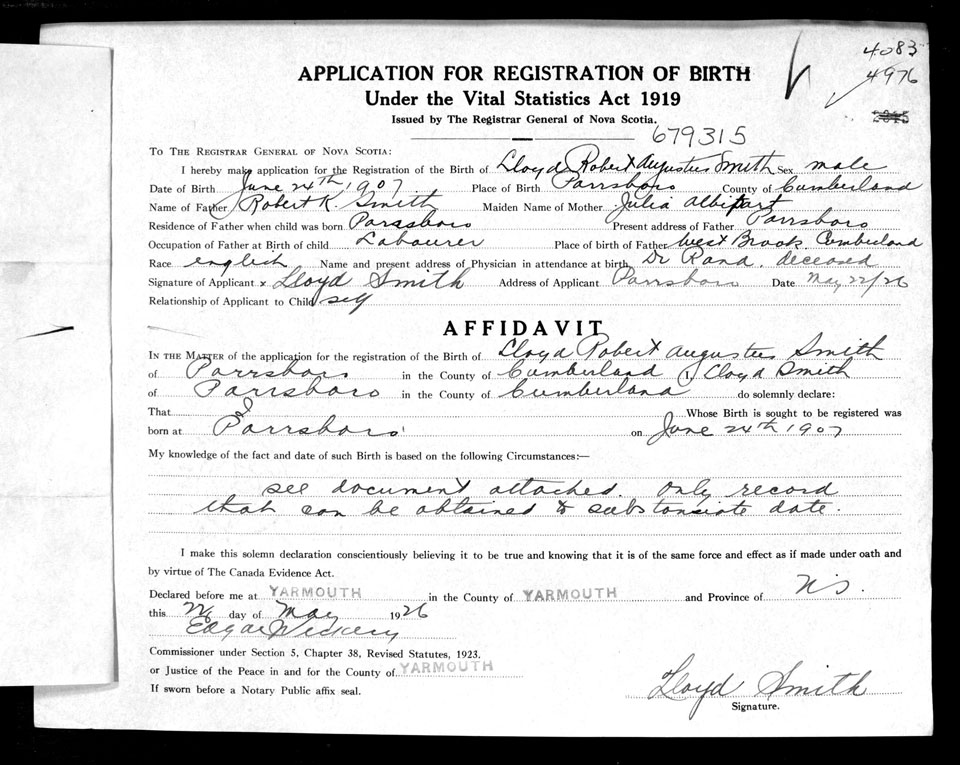 4083
4976
APPLICATION FOR REGISTRATION OF BIRTH
Under the Vital Statistics Act 1919
Issued by The Registrar General of Nova Scotia.
679315
TO THE REGISTRAR GENERAL OF NOVA SCOTIA:
I hereby make application for the Registration of the Birth of Lloyd Robert Augustus Smith Sex male
Date of Birth June 24th 1907 Place of Birth Parrsboro County of Cumberland
Name of Father Robert K. Smith Maiden Name of Mother Julia
Residence of Father when child was born Parrsboro Present address of Father Parrsboro
Occupation of Father at Birth of child Labourer Place of birth of Father West Brook Cumberland
Race english Name and present address of Physician in attendance at birth Dr Rand. deceased
Signature of Applicant x Lloyd Smith Address of Applicant Parrsboro Date May 22/26
Relationship of Applicant to Child self
AFFIDAVIT
IN THE MATTER of the application for the registration of the Birth of Lloyd Robert Augustus Smith
of Parrsboro in the County of Cumberland I, Lloyd Smith
of Parrsboro in the County of Cumberland do solemnly declare:
That I Whose Birth is sought to be registered was
born at Parrsboro on June 24th 1907
My knowledge of the fact and date of such Birth is based on the following Circumstances:—
see document attached. Only record
that can be obtained to substanciate date.
I make this solemn declaration conscientiously believing it to be true and knowing that it is of the same force and effect as if made under oath and
by virtue of The Canada Evidence Act.
Declared before me at YARMOUTH in the County of YARMOUTH and Province of N.S.
this day of May 1926
Edgar
Commissioner under Section 5, Chapter 38, Revised Statutes, 1923.
or Justice of the Peace in and for the County of YARMOUTH
If sworn before a Notary Public affix seal.
Lloyd Smith
Signature.